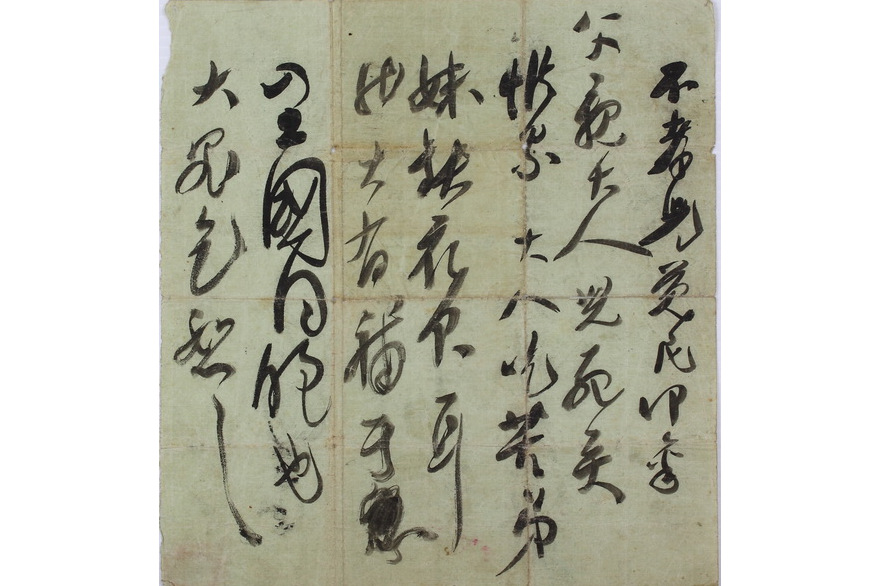 不孝兒覺民叩稟
父親大人 兒死矣
惟累 大人吃苦弟
妹缺衣食耳
然大有補于
全國同胞也
大罪乞恕之